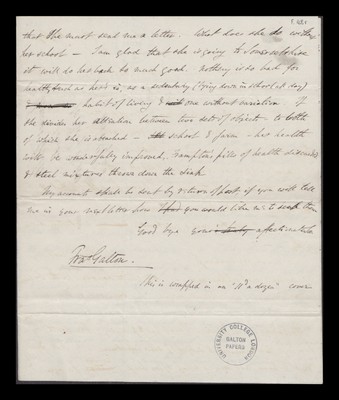 [68]
that she must send me a letter. What does she do with
her school — I am glad that she is going to Somersetshire
it will do her back so much good. nothing is so bad for
health, such as hers is, as a sedentary (lying down in school, all day)
habit of living & one without variation. If
she divides her attention between two sets of objects — to both
of which she is attached — school & farm — her health
will be wonderfully improved. Frampton's pills of health discarded
& steel mixtures thrown down the sink.
My account shall be sent by return of post if you will tell
me in your next letter how you would like me to send them
Good bye your affectionate
Fras Galton.
This is wrapped in an "11d a dozen" cover
UNIVERSITY COLLEGE LONDON
GALTON
PAPERS